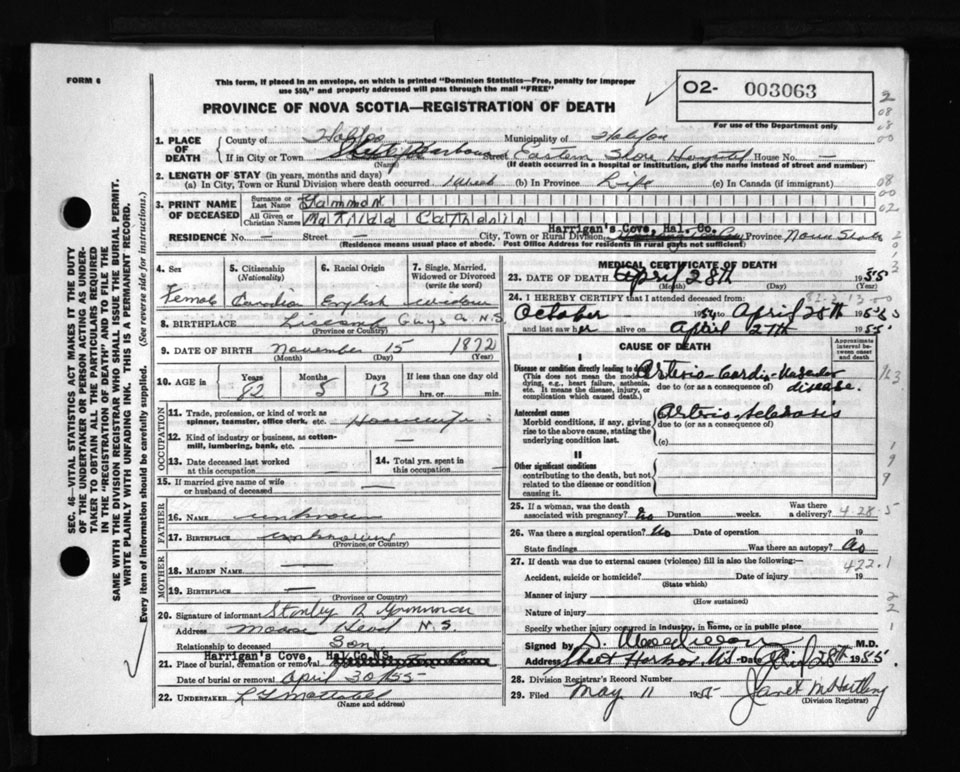 FORM 6
This form, if placed in an envelope, on which is printed "Dominion Statistics—Free, penalty for improper
use $50," and properly addressed will pass through the mail "FREE"
02- 003063
For use of the Department only
PROVINCE OF NOVA SCOTIA—REGISTRATION OF DEATH
1. PLACE OF DEATH
County of Halifax Municipality of Halifax
If in City or Town Sheet Harbour Street Eastern Shore Hospital House No. —
(Name) (If death occurred in a hospital or institution, give the name instead of street and number)
2. LENGTH OF STAY (in years, months and days)
(a) In City, Town or Rural Division where death occurred 1 Week (b) In Province Life (c) In Canada (if immigrant)
3. PRINT NAME OF DECEASED
Surname or Last Name Gammon
All Given or Christian Names Matilda Catherin
Harrigan's Cove, Hal. Co.
RESIDENCE No. — Street — City, Town or Rural Division Province Nova Scotia
(Residence means usual place of abode. Post Office Address for residents in rural parts not sufficient)
4. Sex
Female
5. Citizenship
(Nationality)
Canadian
6. Racial Origin
English
7. Single, Married,
Widowed or Divorced
(write the word)
widow
8. BIRTHPLACE Liscomb Guys Co N.S
(Province or Country)
9. DATE OF BIRTH November 15 1872
(Month) (Day) (Year)
10. AGE in
Years Months Days If less than one day old
82 5 13 hrs. or min.
OCCUPATION
11. Trade, profession, or kind of work as
spinner, teamster, office clerk, etc. Housewife
12. Kind of industry or business, as cotton-
mill, lumbering, bank, etc. —
13. Date deceased last worked
at this occupation —
14. Total yrs. spent in
this occupation —
15. If married give name of wife
or husband of deceased —
FATHER
16. NAME unknown
17. BIRTHPLACE unknown
(Province or Country)
MOTHER
18. MAIDEN NAME —
19. BIRTHPLACE —
(Province or Country)
20. Signature of informant Stanley
Address Moose Head N.S.
Relationship to deceased Son
Harrigan's Cove, Hal.Co.NS.
21. Place of burial, cremation or removal
Date of burial or removal April 30 1955
22. UNDERTAKER
(Name and address)
MEDICAL CERTIFICATE OF DEATH
23. DATE OF DEATH April 28th 1955
(Month) (Day) (Year)
24. I HEREBY CERTIFY that I attended deceased from:
October 1954 to April 28th 1955
and last saw her alive on April 27th 1955.
CAUSE OF DEATH
Approximate
interval be-
tween onset
and death
I
Disease or condition directly leading to death
(This does not mean the mode of
dying, e.g., heart failure, asthenia,
etc. It means the disease, injury, or
complication which caused death.
Arterio-Cardio-Vascular
due to (or as a consequence of) disease.
Antecedent causes
Morbid conditions, if any, giving
rise to the above cause, stating the
underlying condition last.
Arterio-sclerosis
due to (or as a consequence of)
(c)
II
Other significant conditions
contributing to the death, but not
related to the disease or condition
causing it.
25. If a woman, was the death
associated with pregnancy? No Duration weeks. Was there
a delivery?
26. Was there a surgical operation? No Date of operation 19
State findings Was there an autopsy? No
27. If death was due to external causes (violence) fill in also the following:—
422.1
Accident, suicide or homicide? Date of injury 19
(State which)
Manner of injury
(How sustained)
Nature of injury
Specify whether injury occurred in industry, in home, or in public place
Signed by M.D.
Address Sheet Harbor NS. Date April 28th 1955.
28. Division Registrar's Record Number
29. Filed May 11 1955 Janet M Hartling
(Division Registrar)
SEC. 46—VITAL STATISTICS ACT MAKES IT THE DUTY
OF THE UNDERTAKER OR PERSON ACTING AS UNDER-
TAKER TO OBTAIN ALL THE PARTICULARS REQUIRED
IN THE "REGISTRATION OF DEATH" AND TO FILE THE
SAME WITH THE DIVISION REGISTRAR WHO SHALL ISSUE THE BURIAL PERMIT.
WRITE PLAINLY WITH UNFADING INK. THIS IS A PERMANENT RECORD.
Every item of information should be carefully supplied. (See reverse side for instructions.)